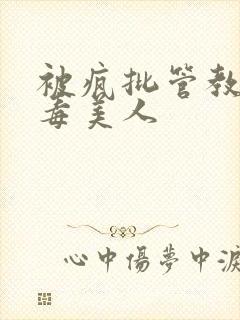 被疯批管教
毒美人
心中傷夢中淚